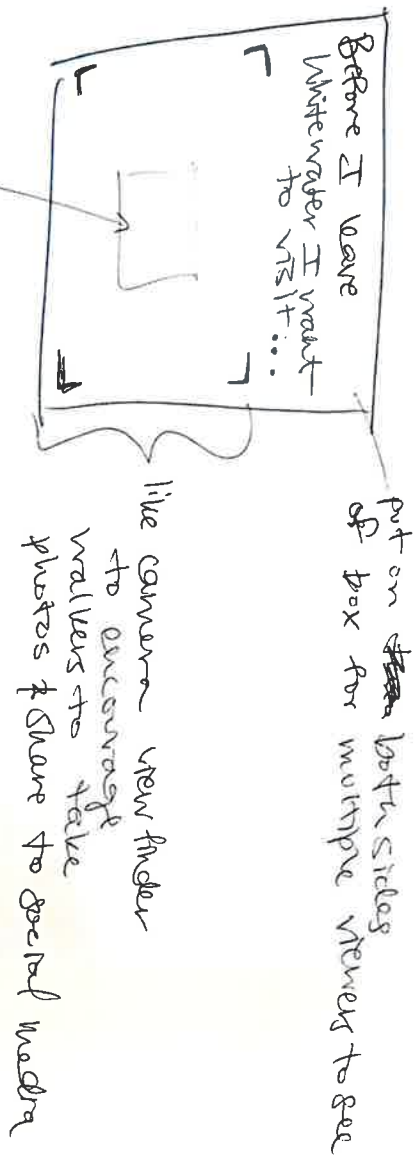 Before I leave
Whitewater I want
to visit...
put on both sides
of box for multiple viewers to see
like camera viewfinder
to encourage
walkers to take
photos & share to social media